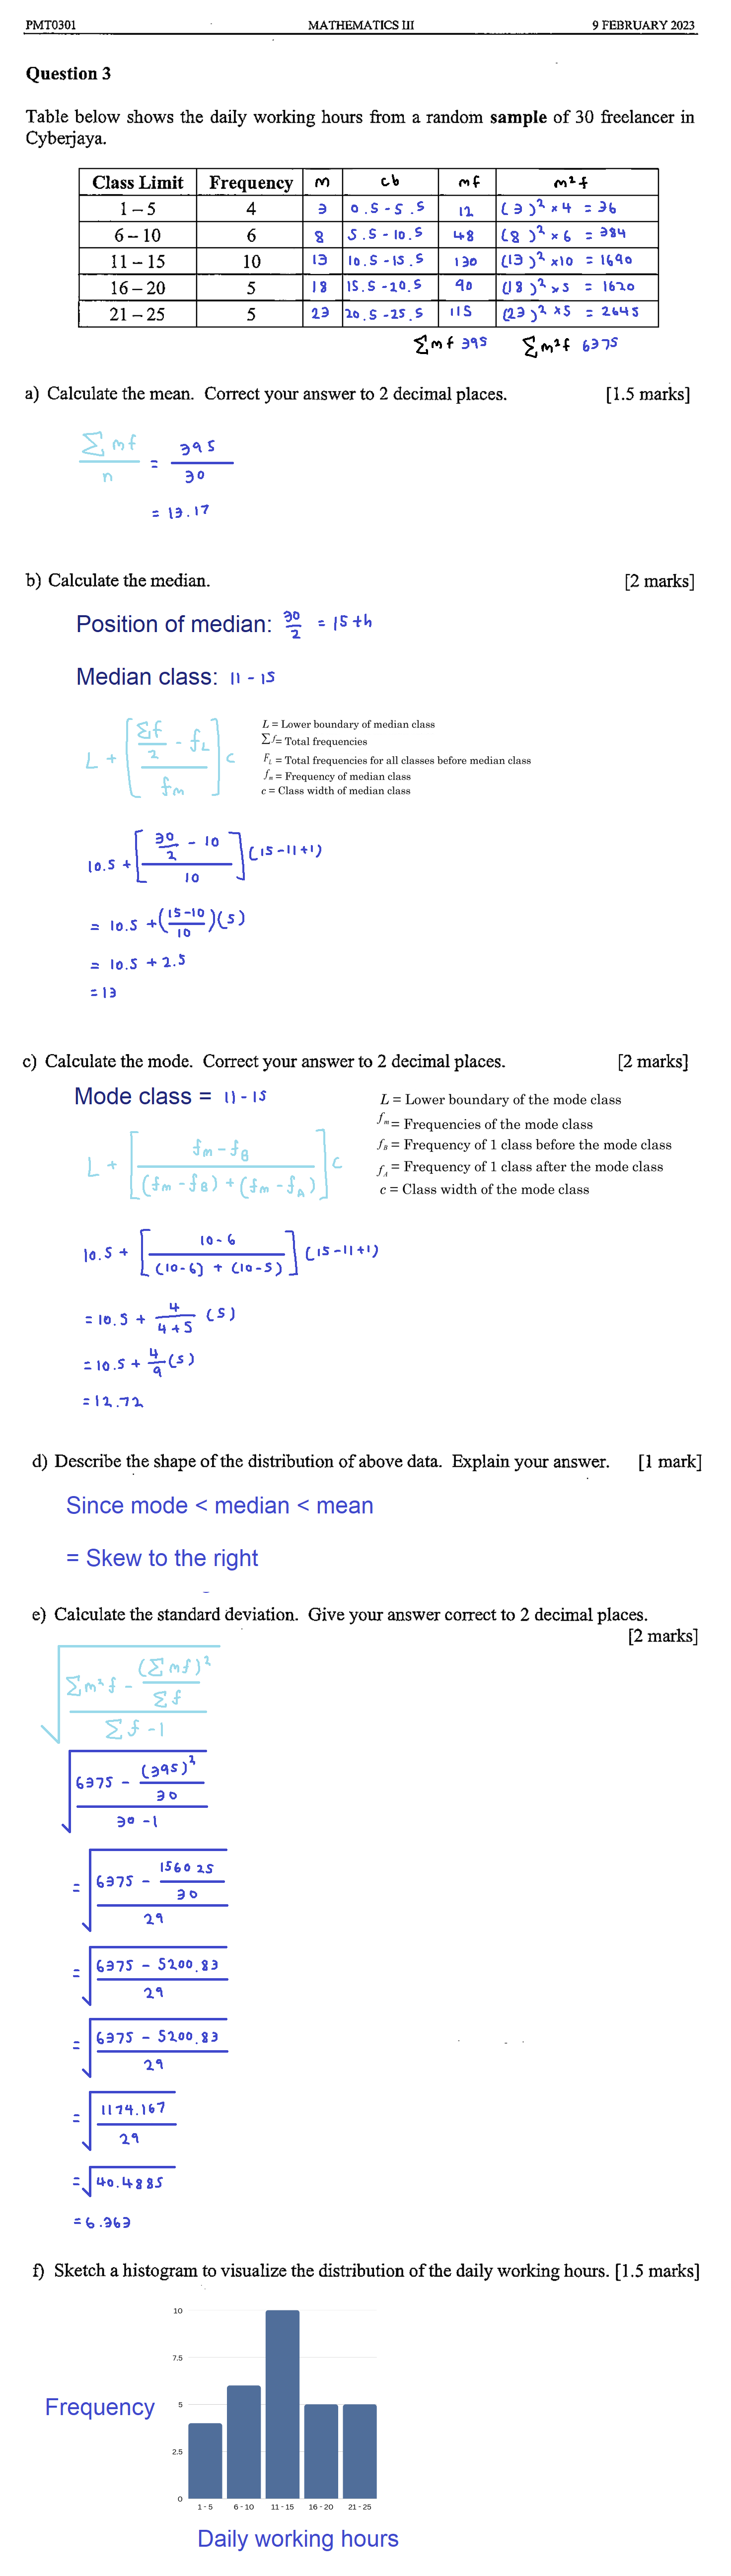 PMT0301 MATHEMATICS III 9 FEBRUARY 2023
Question 3
Table below shows the daily working hours from a random sample of 30 freelancer in
Cyberjaya.
Class Limit Frequency m cb mf m²f
1 – 5 4 3 0.5 - 5.5 12 (3)² × 4 = 36
6 – 10 6 8 5.5 - 10.5 48 (8)² × 6 = 384
11 – 15 10 13 10.5 - 15.5 130 (13)² × 10 = 1690
16 – 20 5 18 15.5 - 20.5 90 (18)² × 5 = 1620
21 – 25 5 23 20.5 - 25.5 115 (23)² × 5 = 2645
Σmf 395 Σm²f 6375
a) Calculate the mean. Correct your answer to 2 decimal places. [1.5 marks]
Σmf / n = 395 / 30
= 13.17
b) Calculate the median. [2 marks]
Position of median: 30/2 = 15th
Median class: 11 - 15
L + [(Σf/2 - fL) / fm] c
L = Lower boundary of median class
Σf = Total frequencies
FL = Total frequencies for all classes before median class
fm = Frequency of median class
c = Class width of median class
10.5 + [(30/2 - 10) / 10] (15-11+1)
= 10.5 + ((15-10) / 10)(5)
= 10.5 + 2.5
= 13
c) Calculate the mode. Correct your answer to 2 decimal places. [2 marks]
Mode class = 11 - 15
L + [(fm - fB) / ((fm - fB) + (fm - fA))] c
L = Lower boundary of the mode class
fm = Frequencies of the mode class
fB = Frequency of 1 class before the mode class
fA = Frequency of 1 class after the mode class
c = Class width of the mode class
10.5 + [(10-6) / ((10-6) + (10-5))] (15-11+1)
= 10.5 + 4 / (4+5) (5)
= 10.5 + 4/9 (5)
= 12.72
d) Describe the shape of the distribution of above data. Explain your answer. [1 mark]
Since mode < median < mean
= Skew to the right
e) Calculate the standard deviation. Give your answer correct to 2 decimal places.
[2 marks]
√((Σm²f - (Σmf)² / Σf) / (Σf - 1))
√((6375 - (395)² / 30) / (30 - 1))
= √((6375 - 156025 / 30) / 29)
= √((6375 - 5200.83) / 29)
= √((6375 - 5200.83) / 29)
= √(1174.167 / 29)
= √40.4885
= 6.363
f) Sketch a histogram to visualize the distribution of the daily working hours. [1.5 marks]
10
7.5
5
2.5
0
Frequency
1 - 5 6 - 10 11 - 15 16 - 20 21 - 25
Daily working hours